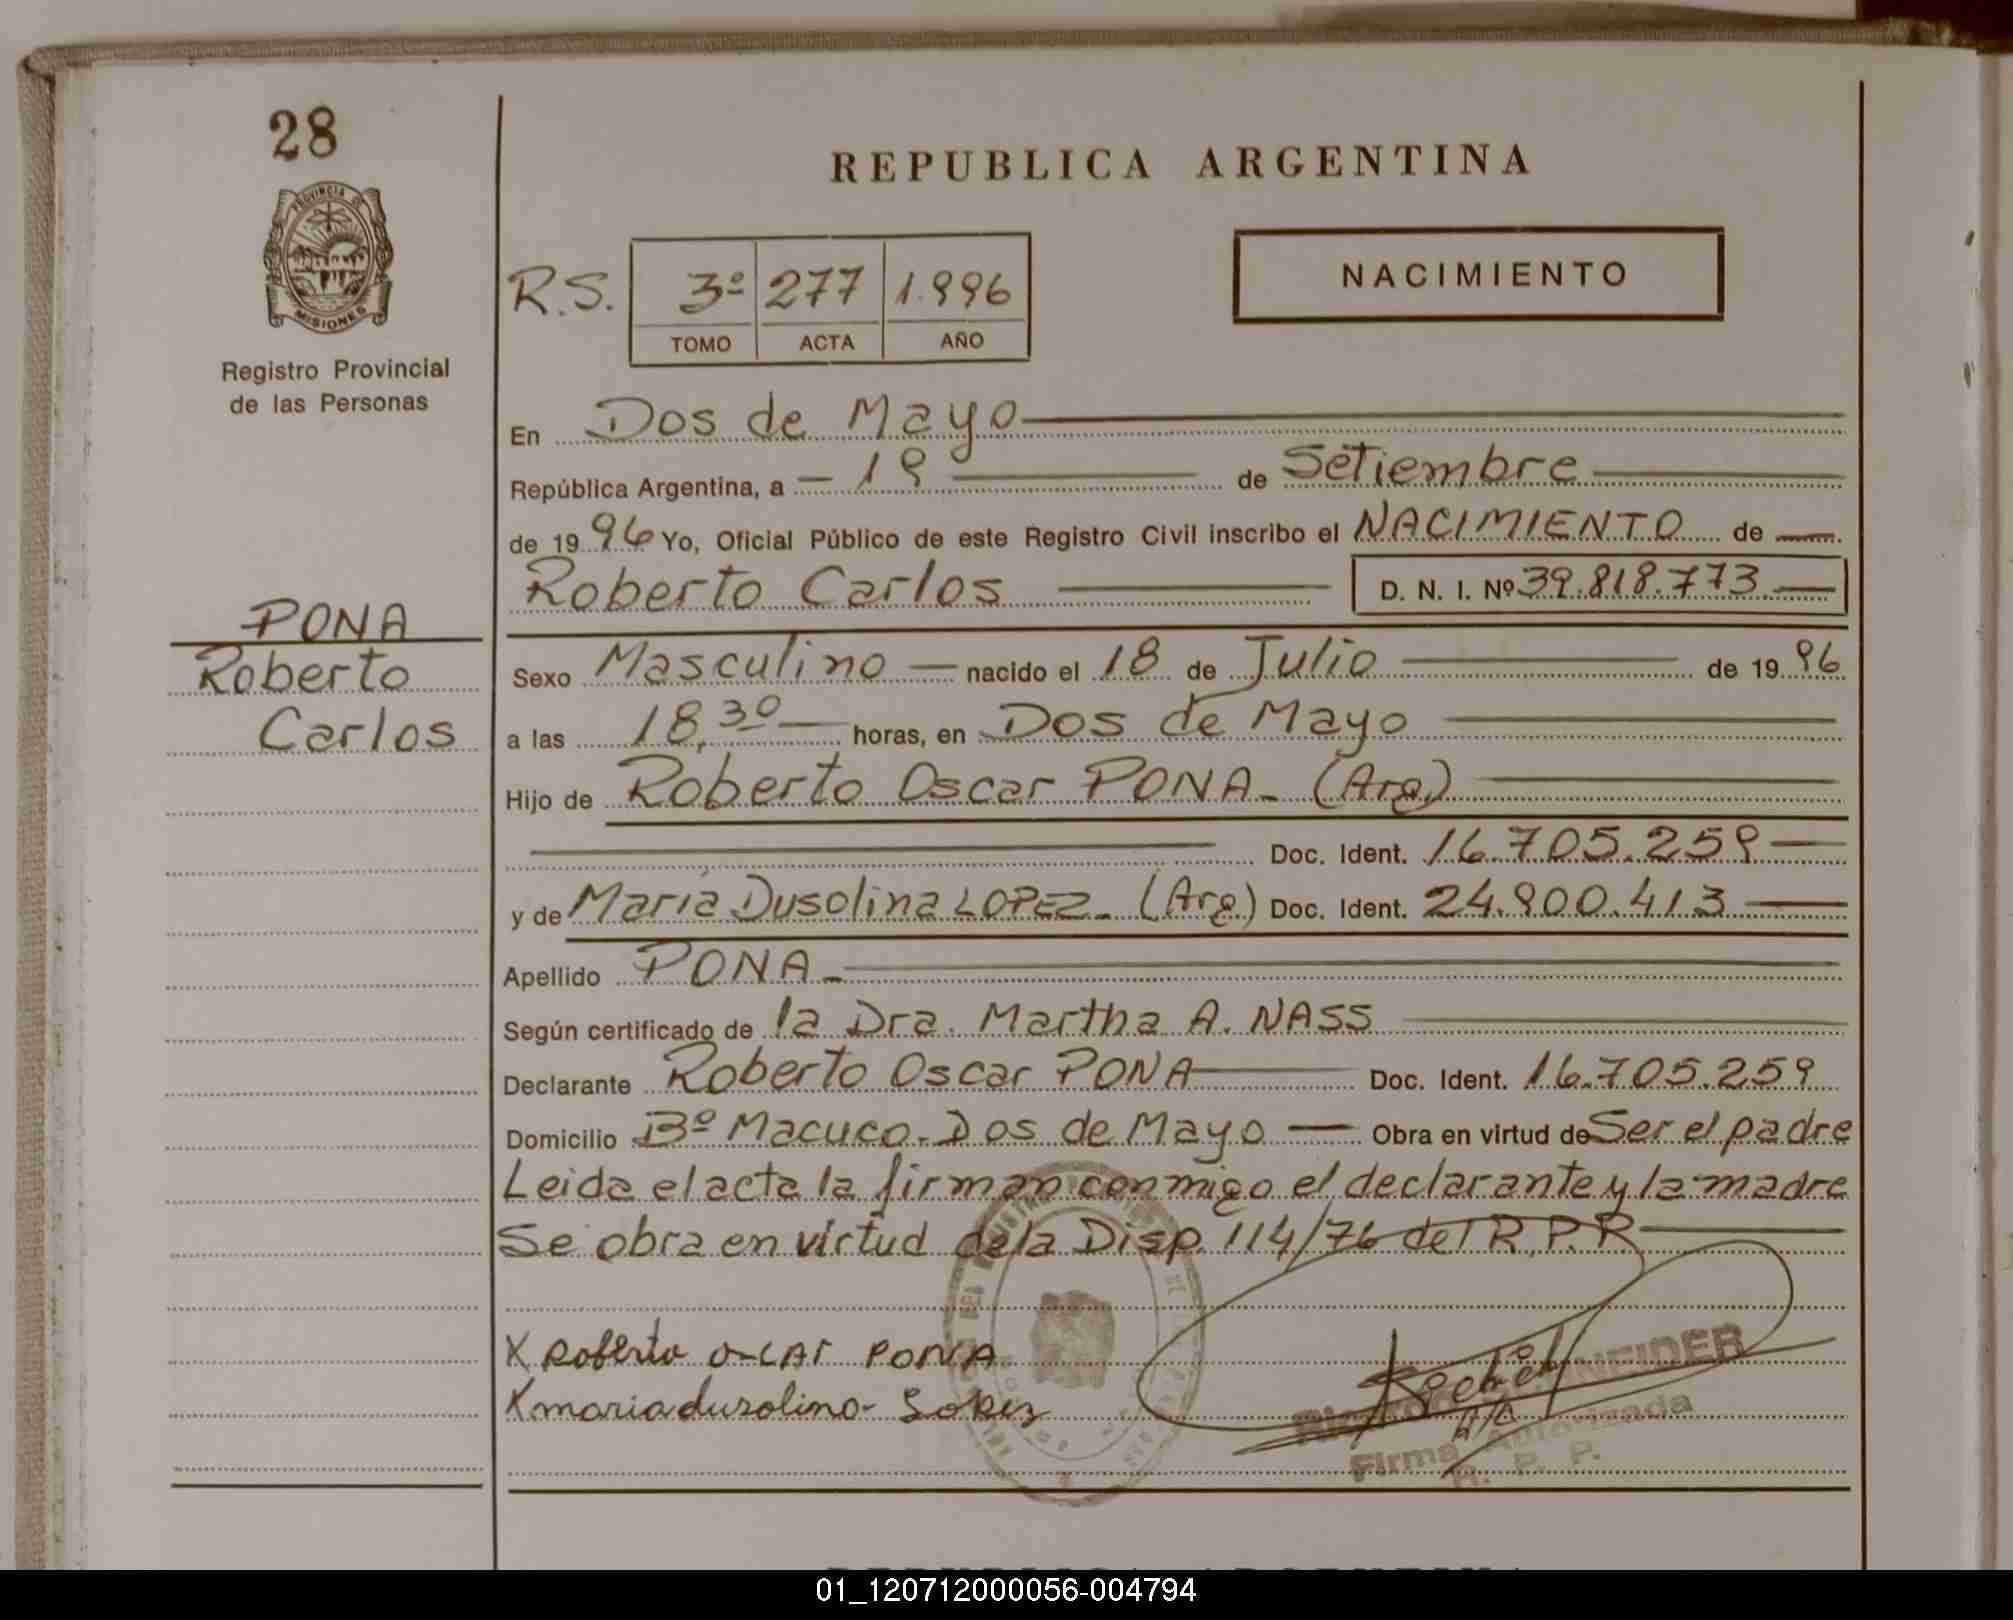 28
REPUBLICA ARGENTINA
PROVINCIA DE
MISIONES
Registro Provincial
de las Personas
R.S. 3º 277 1.996
TOMO ACTA AÑO
NACIMIENTO
En Dos de Mayo
República Argentina, a - 19 de Setiembre
de 19 96 Yo, Oficial Público de este Registro Civil inscribo el NACIMIENTO de
Roberto Carlos D. N. I. Nº 39.818.773.
PONA
Roberto
Carlos
Sexo Masculino nacido el 18 de Julio de 19 96
a las 18,30 horas, en Dos de Mayo
Hijo de Roberto Oscar PONA- (Arg.)
Doc. Ident. 16.705.259
y de María Dusolina LOPEZ- (Arg.) Doc. Ident. 24.900.413
Apellido PONA-
Según certificado de la Dra. Martha A. NASS
Declarante Roberto Oscar PONA Doc. Ident. 16.705.259
Domicilio Bº Macuco. Dos de Mayo Obra en virtud de Ser el padre
Leida el acta la firman conmigo el declarante y la madre
Se obra en virtud de la Disp. 114/76 del R.P.R
X Roberto Oscar PONA
X maria dusolino- Lopez
SCHNEIDER
Firma Autorizada
R. P. P.
01_120712000056-004794